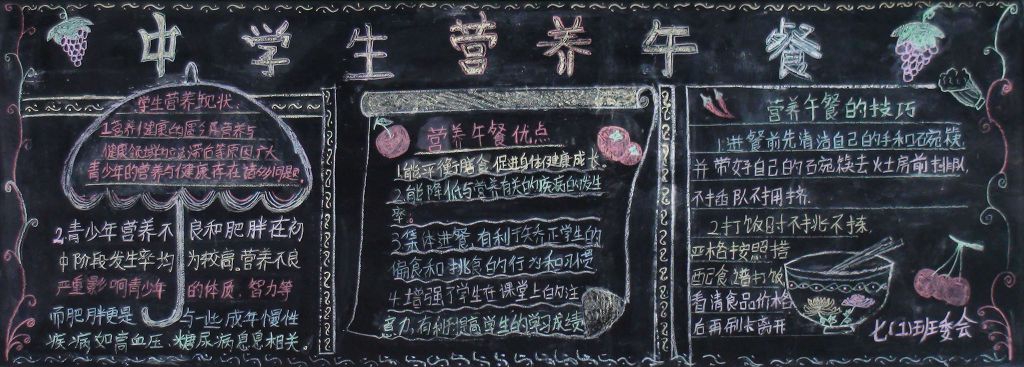 中学生营养午餐
学生营养现状:
1.营养健康的
健康领域的滞后等原因,广大
青少年的营养与健康存在诸多问题.
2.青少年营养不良和肥胖在初
中阶段发生率均为较高.营养不良
严重影响青少年的体质、智力等
而肥胖更是与一些成年慢性
疾病如高血压、糖尿病息息相关.
营养午餐优点
1.能平衡膳食,促进身体健康成长.
2.能降低与营养有关的疾病的发生
率.
3.集体进餐,有利于矫正学生的
偏食和挑食的行为和习惯
4.增强了学生在课堂上的注
意力,有利提高学生的学习成绩
营养午餐的技巧
1.进餐前先清洁自己的手和碗筷
并带好自己的碗筷去火房前排队,
不插队不拥挤.
2.打饭时不挑不拣,
严格按照搭
配食谱打饭
看清食品价格
后再刷卡离开
七(1)班委会